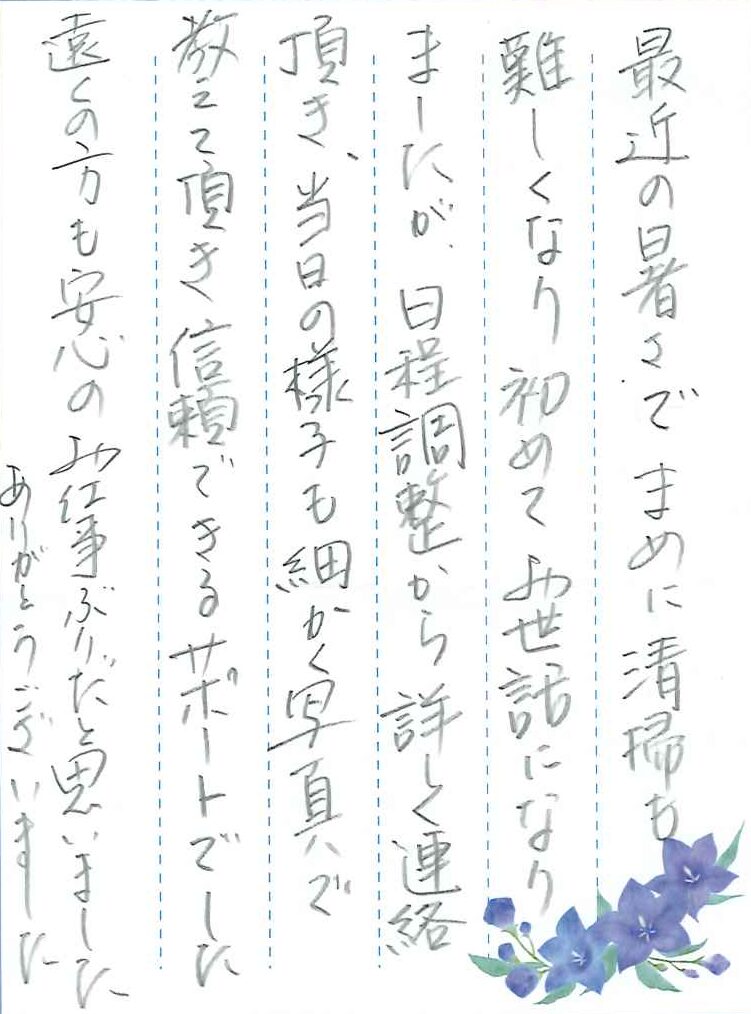 最近の暑さでまめに清掃も
難しくなり初めてお世話になり
ましたが、日程調整から詳しく連絡
頂き、当日の様子も細かく写真で
教えて頂き信頼できるサポートでした
遠くの方も安心のお仕事ぶりだと思いました
ありがとうございました